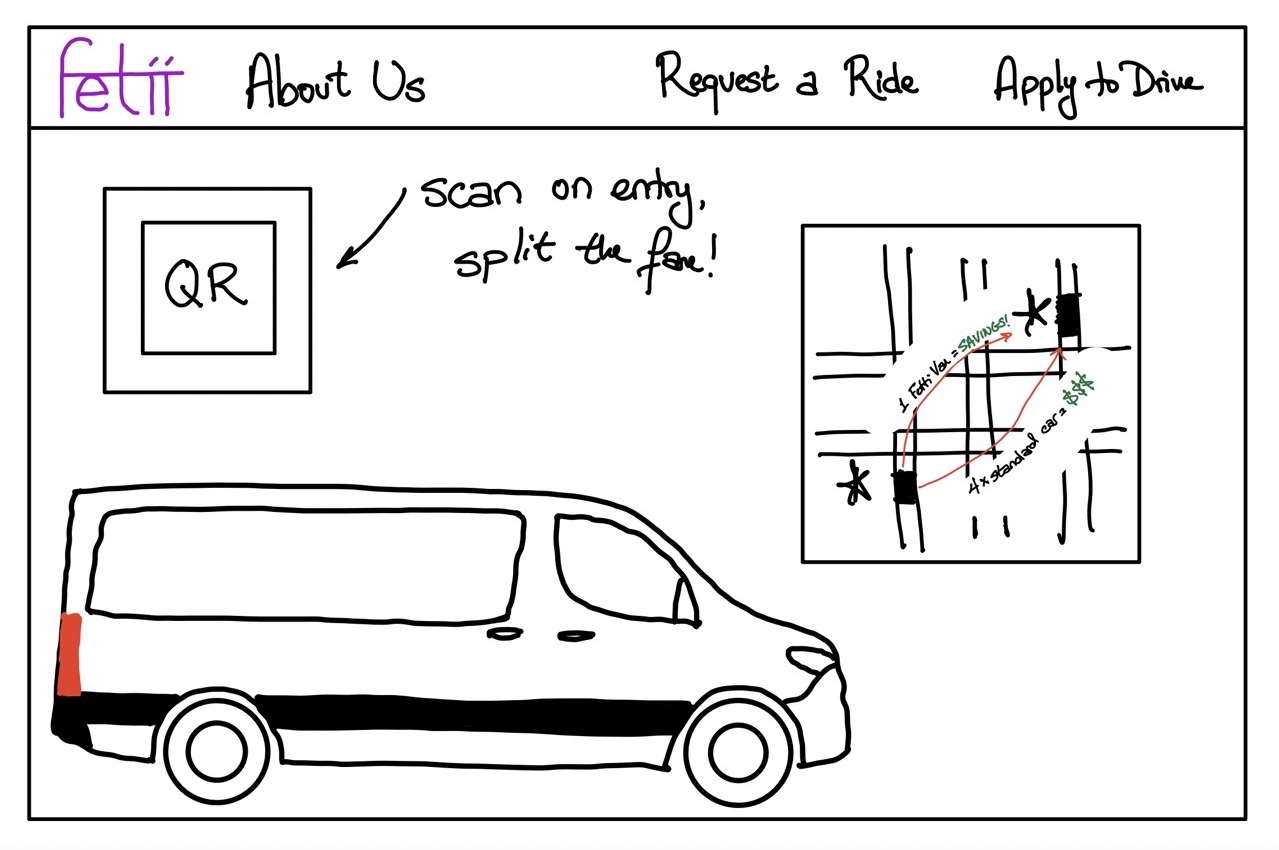 fetii About Us Request a Ride Apply to Drive
scan on entry,
split the fare!
QR
1 Fetii Van = SAVINGS!
4x standard car = $$$